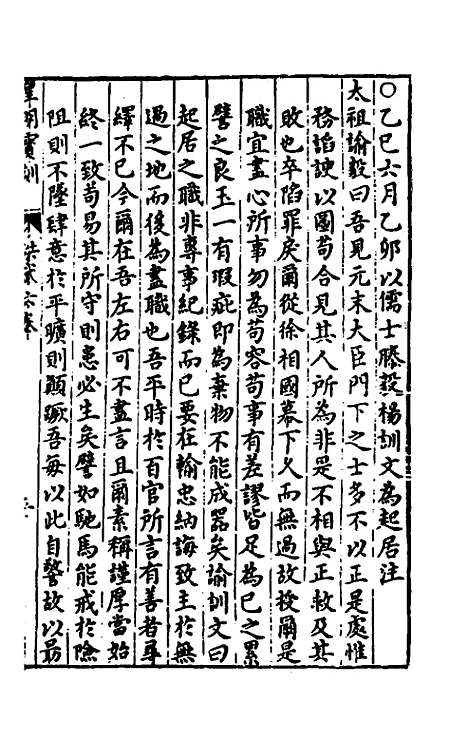 ○乙巳六月乙卯以儒士滕毅楊訓文為起居注
太祖諭毅曰吾見元末大臣門下之士多不以正是處惟
務諂諛以圖苟合見其人所為非是不相與正救及其
敗也卒陷罪戾爾從徐相國幕下久而無過故授爾是
職宜盡心所事勿為苟容苟事有差謬皆足為己之累
譬之良玉一有瑕疵即為棄物不能成器矣諭訓文曰
起居之職非專事紀錄而已要在輸忠納誨致主於無
過之地而後為盡職也吾平時於百官所言有善者尋
繹不已今爾在吾左右可不盡言且爾素稱謹厚當始
終一致苟易其所守則患必生矣譬如馳馬能戒於險
阻則不墜肆意於平曠則顛蹶吾每以此自警故以勗
皇明寶訓 洪武六卷